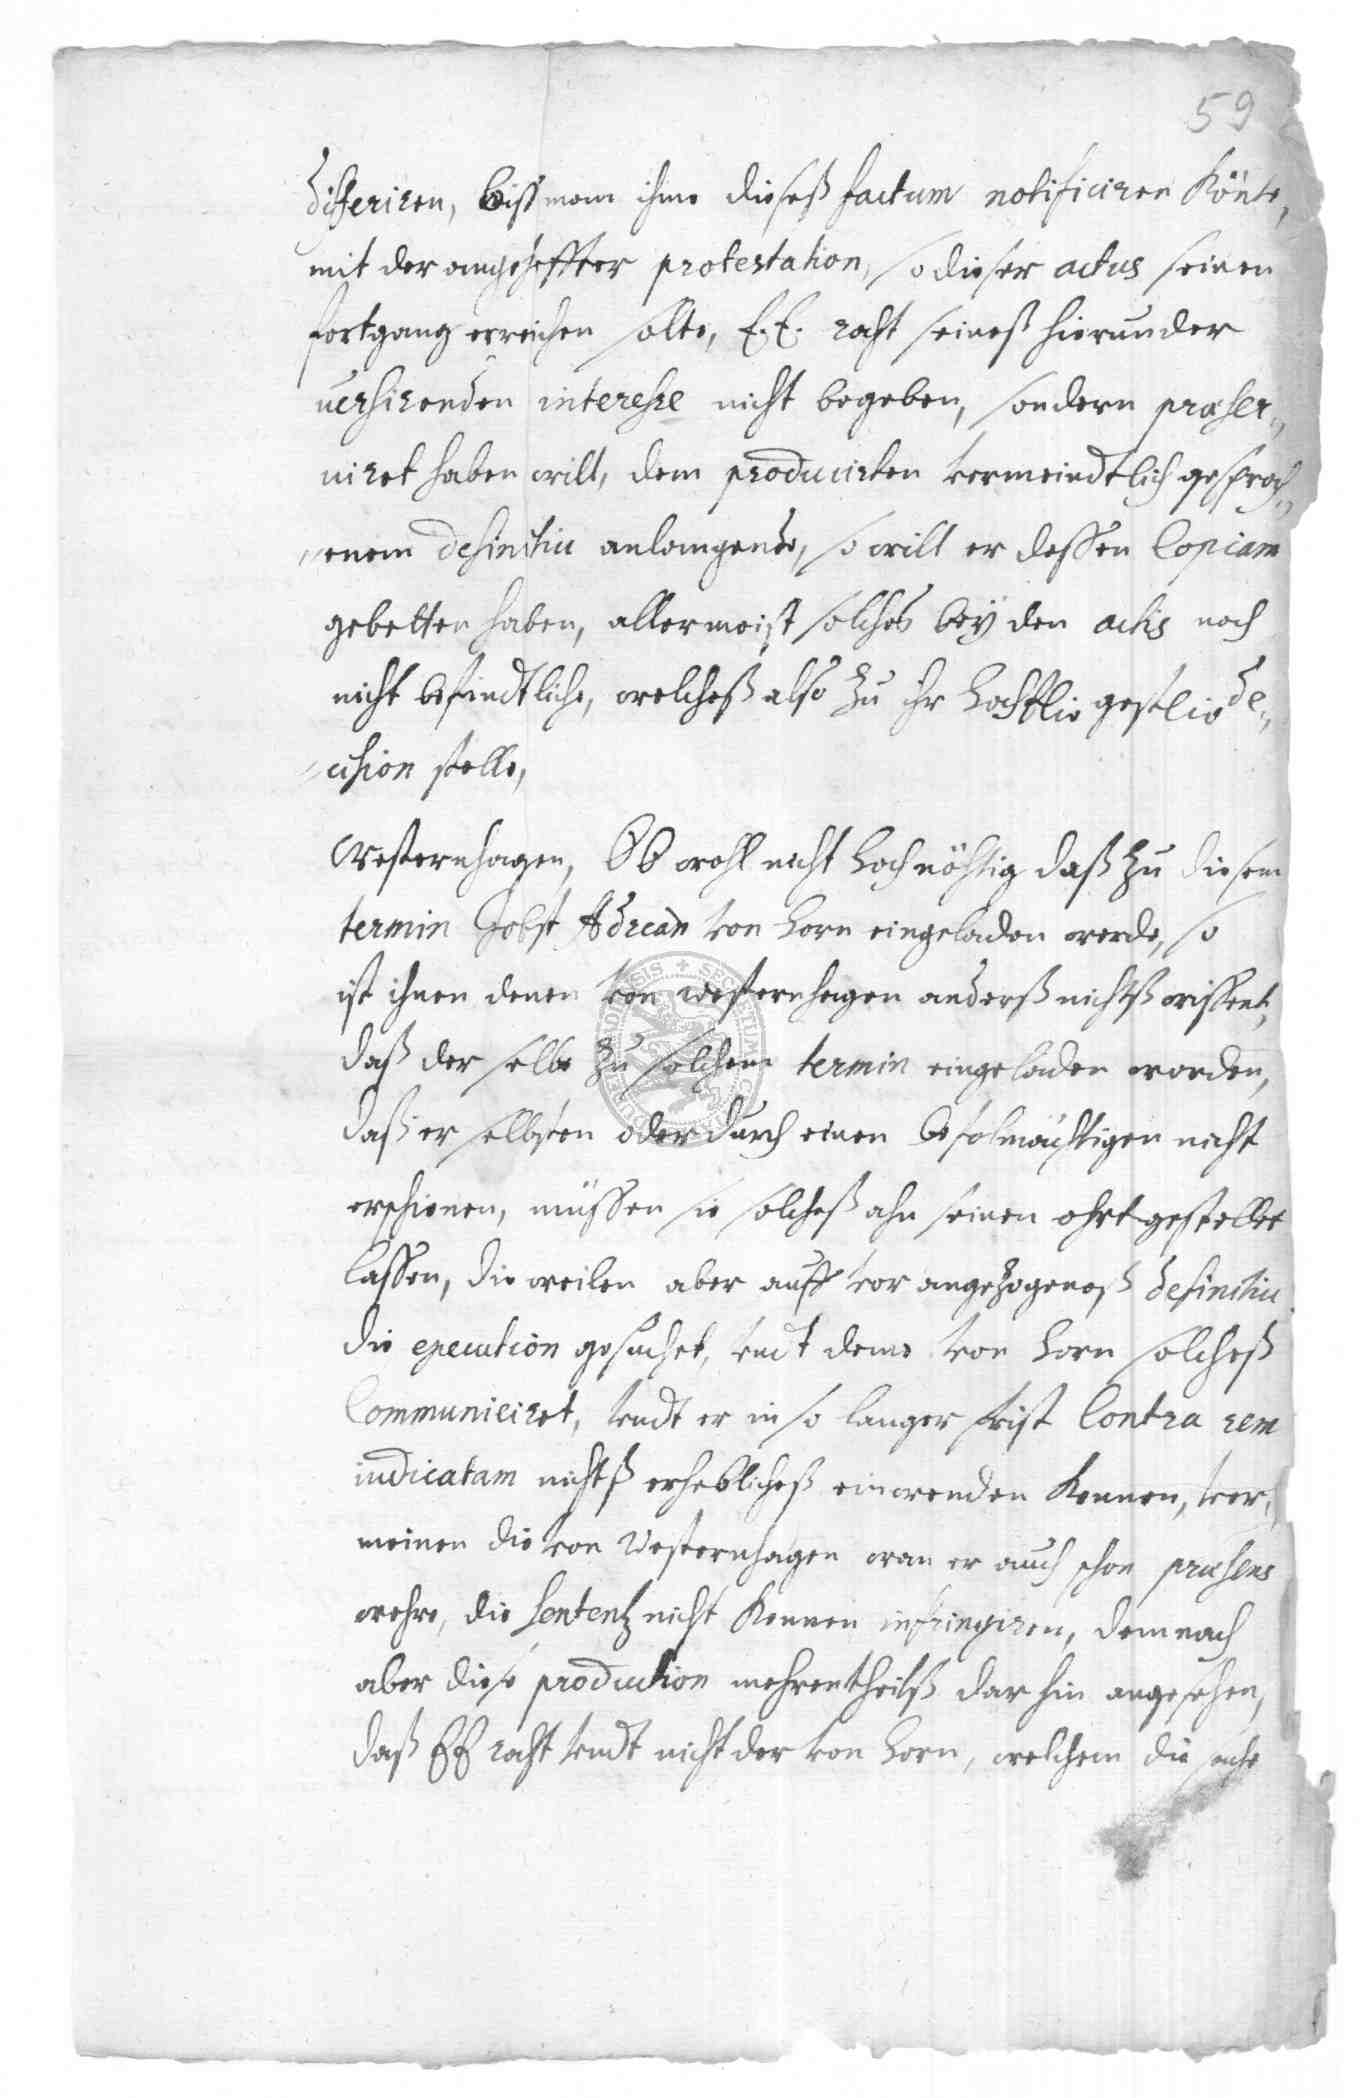 59
differiren, biß man ihme dieseß factum notificiren könte,
mit der angeheffter protestation, so dieser actus seinen
fortgang erreichen solte, E. E. raht seineß hierunder
uersirenden interesse nicht begeben, sondern præser„
uiret haben will, dem producirten vermeindtlich gesproch„
„enem definitiu anlangende, so will er dessen Copiam
gebetten haben, allermeist solches beÿ den actis noch
nicht befindtliche, welcheß also zu ihr hochfl gestl de„
„cision stelle,
Westernhagen, Ob wohl nicht hochnöhtig daß zu diesem
termin Jobst Adrean von horn eingeladen werde, so
ist ihnen denen von westernhagen anderß nichtß wissent,
daß der selbe zu solchem termin eingeladen worden,
daß er selbsten oder durch einen befolmächtigen nicht
erschienen, müssen sie solcheß ahn seinen ohrt gestellet
lassen, die weilen aber auff vor angezogeneß definitiu
die execution gesuchet, vndt deme von horn solcheß
Communiciret, vndt er in so langer frist Contra rem
iudicatam nichtß erheblicheß einwenden kennen, ver„
meinen die von Westernhagen wan er auch schon præsens
wehre, die sententz nicht kennen infringiren, dem nach
aber diese production mehrentheilß dar hin angesehen,
daß EE raht vndt nicht der von horn, welchem die sache
SECRETUM